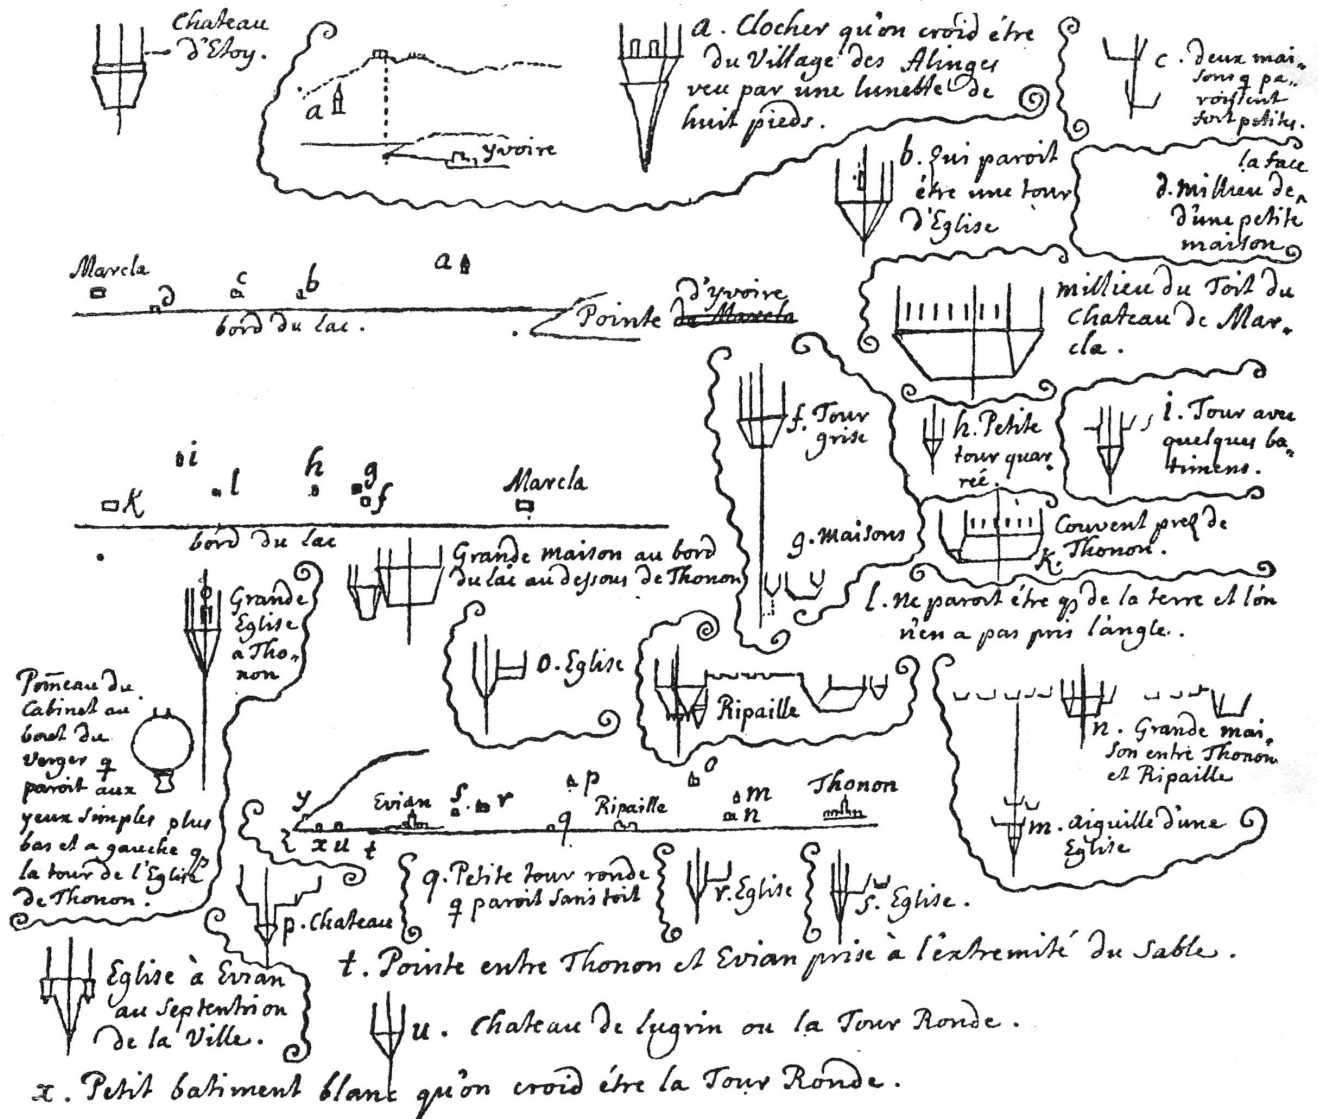 Chateau
d'Etoy.
a
yvoire
a. Clocher qu'on croid étre
du Village des Alinges
veu par une lunette de
huit pieds.
c. deux mai-
sons q pa-
roissent
fort petites.
b. qui paroit
étre une tour
d'Eglise
la face
d. millieu de ^
d'une petite
maison
Marcla
d
c
b
a
bord du lac.
Pointe de Marcla
d'yvoire
millieu du Toit du
chateau de Mar-
cla.
f. Tour
grise
h. Petite
tour quar-
reé.
i. Tour avec
quelques ba-
timens.
i
K
l
h
g
f
Marcla
bord du lac
g. maisons
Couvent preq de
Thonon.
K.
Grande maison au bord
du lac au dessous de Thonon
l. ne paroit étre q de la terre et l'on
n'en a pas pris l'angle..
Grande
Eglise
a Tho-
non
o. Eglise
Ripaille
n. Grande mai-
son entre Thonon
et Ripaille
m. aiguille d'une
Eglise
Pom̄eau du
Cabinet au
bout du
Verger q
paroit aux
yeux simples plus
bas et a gauche q
la tour de l'Eglise
de Thonon.
y
z
x
u
t
Evian
s
r
p
q
Ripaille
o
m
n
Thonon
p. Chateau
q. Petite tour ronde
q paroit sans toit
r. Eglise
s. Eglise.
t. Pointe entre Thonon et Evian prise à l'extremité du sable.
Eglise à Evian
au septentrion
de la Ville.
u. Chateau de Lugrin ou la Tour Ronde.
x. Petit batiment blanc qu'on croid étre la Tour Ronde.